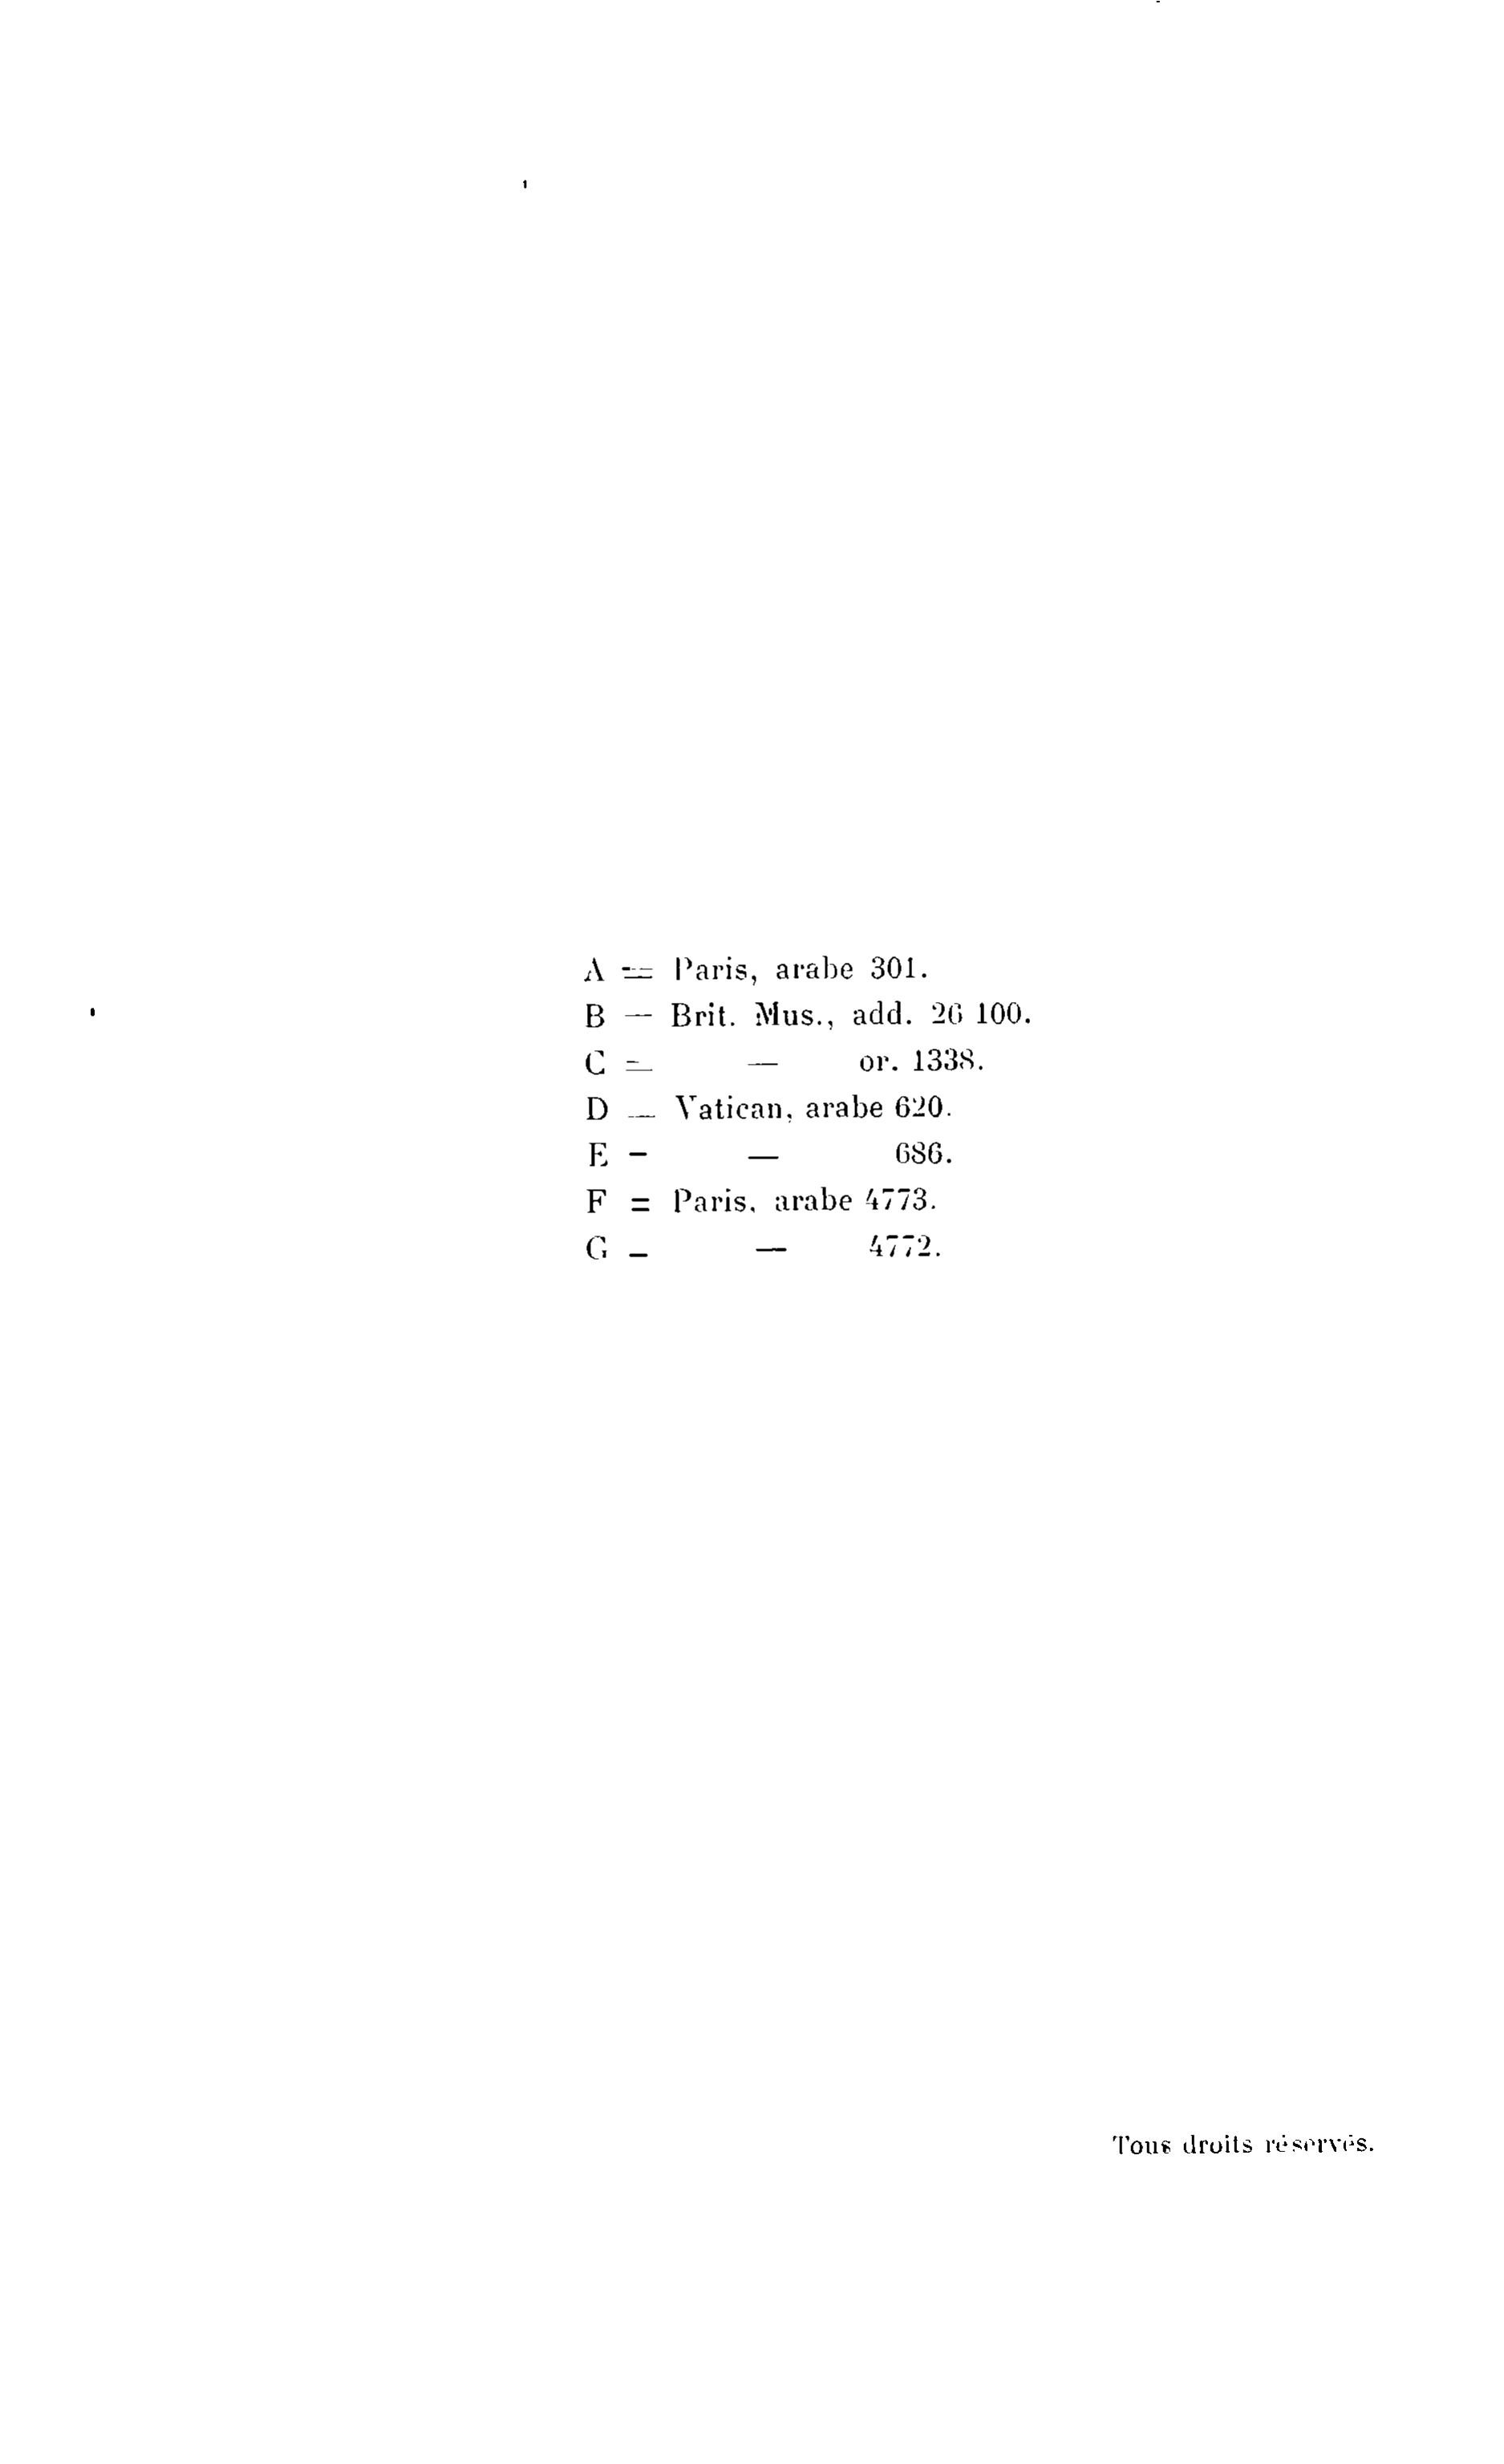 A = Paris, arabe 301.
B = Brit. Mus., add. 26 100.
C = — or. 1338.
D = Vatican, arabe 620.
E = — 686.
F = Paris, arabe 4773.
G = — 4772.
Tous droits réservés.